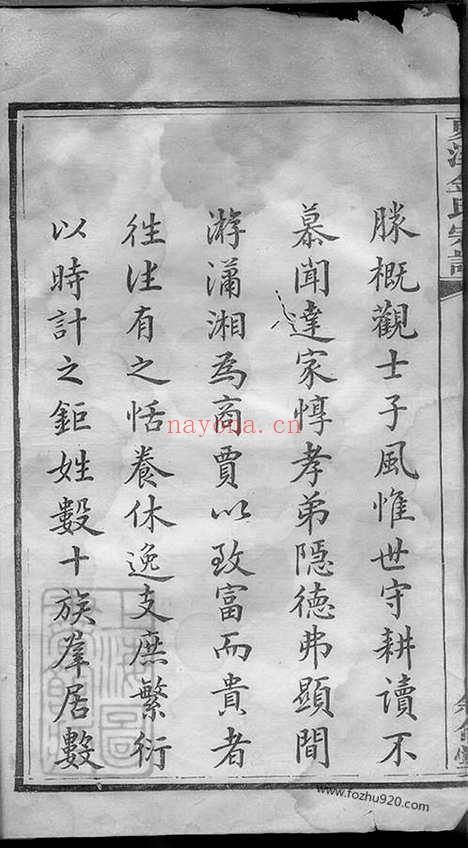 勝概觀士子風惟世守耕讀不
慕聞達家惇孝弟隱德弗顯間
游瀟湘為商賈以致富而貴者
往往有之恬養休逸支庶繁衍
以時計之鉅姓數十族羣居數
金氏宗譜
nayona.cn
www.fozhu920.com